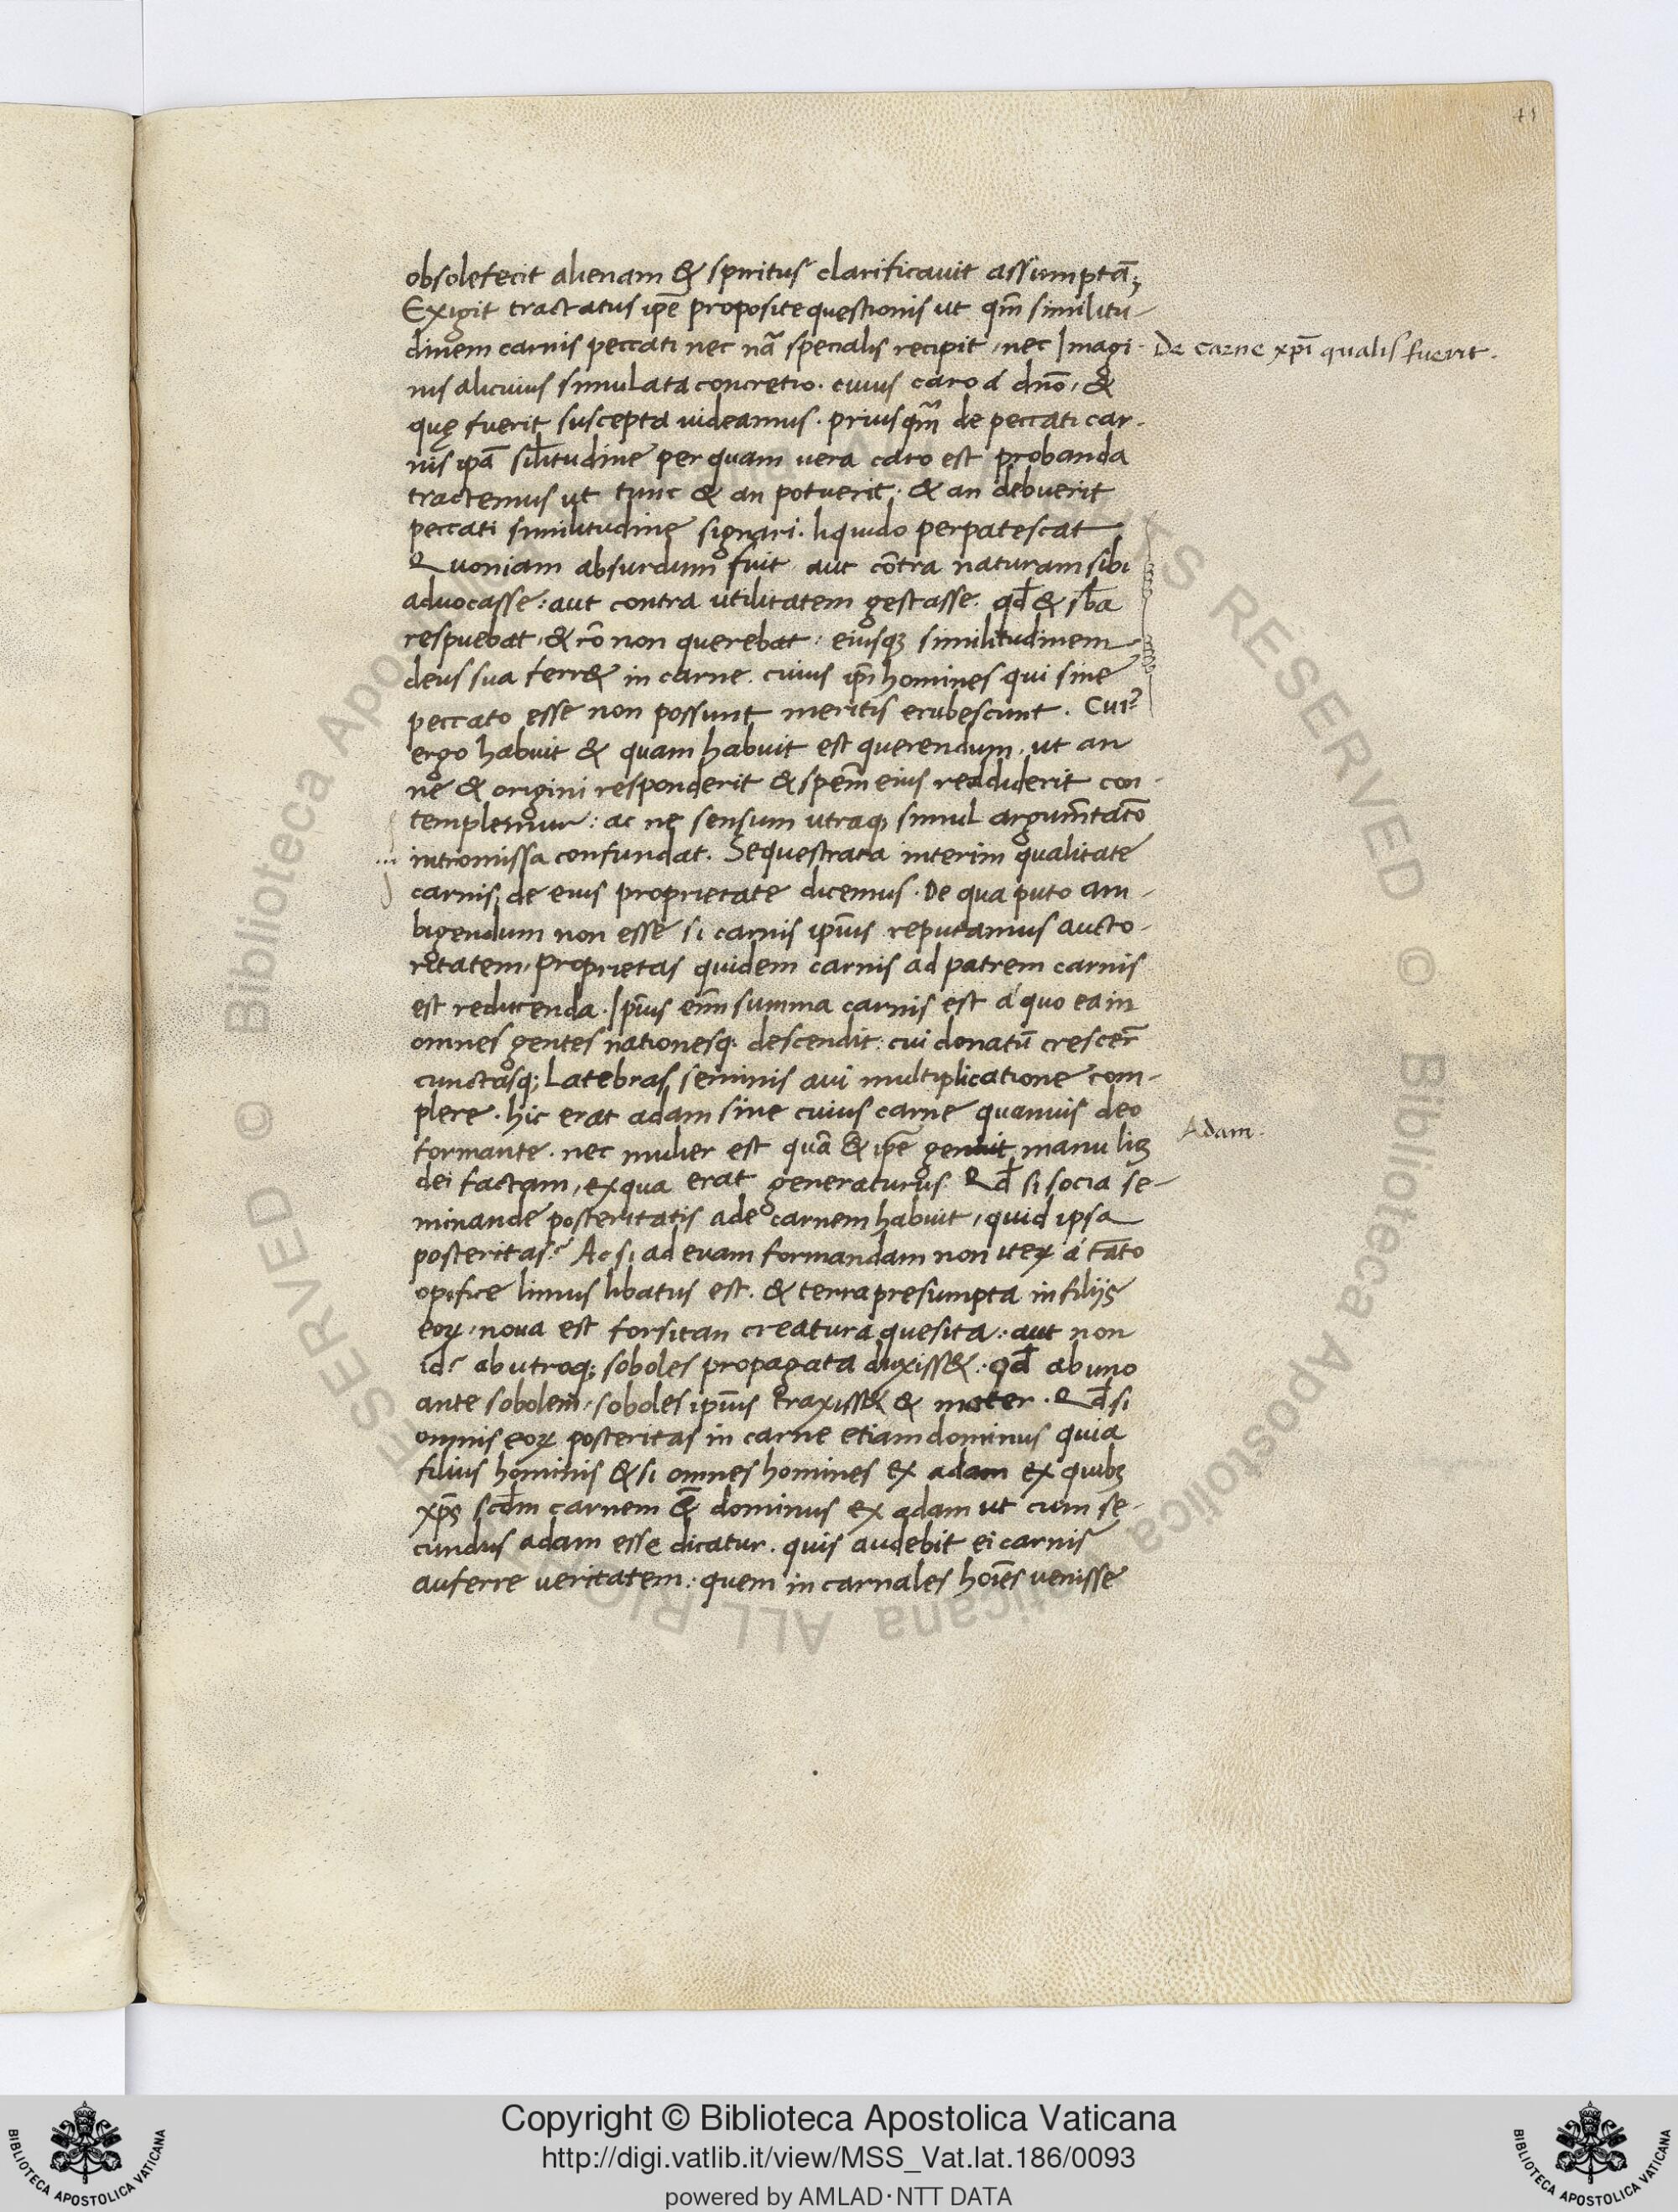 41
obsolefecit alienam & spiritus clarificauit assumptā;
Exigit tractatus ip̄e proposite questionis ut qm̄ similitu-
dinem carnis peccati nec nā specialis recipit, nec Imagi-
De carne xp̄i qualis fuerit.
nis alicuius simulata concretio. cuius caro á dn̄o, &
quę fuerit suscepta uideamus. priusqm̄ de peccati car-
nis ip̄a sil̄itudine per quam uera caro est probanda
tractemus ut tunc & an potuerit. & an debuerit
peccati similitudine signari. liquido perpatescat
Quoniam absurdum fuit aut cōntra naturam sibi
aduocasse: aut contra utilitatem gestasse. qd̄ &
respuebat, & rō non querebat: eiusq; similitudinem
deus sua ferr& in carne. cuius ip̄i homines qui sine
peccato esse non possunt meritis erubescunt. Cui?
ergo habuit & quam habuit est querendum, ut an
ne & origini responderit & spem̄ eius reddiderit con-
templemur: ac ne sensum utraq; simul argum̄tatō
intromissa confundat. Sequestrata interim qualitate
carnis, de eius proprietate dicemus. De qua puto am-
bigendum non esse si carnis ip̄ius reputamus aucto-
ritatem, proprietas quidem carnis ad patrem carnis
est reducenda. Ip̄ius eni̅m summa carnis est á quo ea in
omnes gentes nationesq; descendit: cui donatū crescer̄
cunctasq; latebras seminis aui multiplicatione com-
plere. hic erat adam sine cuius carne quamuis deo
Adam.
formante. nec mulier est quā & ip̄e genuit manu lic;
dei factam, ex qua erat generaturus Qd̄ si socia se-
minande posteritatis ade carnem habuit, quid ipsa
posteritas? Ac si ad euam formandam non iteꝝ á tāto
opifice limus libatus est. & terra presumpta in filijs
eoꝝ, noua est forsitan creatura quesita: aut non
id? ab utroq; soboles propagata duxiss&: qd̄ ab uno
ante sobolem, soboles ip̄ius traxiss& & mater. Qd̄ si
omnis eoꝝ posteritas in carne etiam dominus quia
filius hominis & si omnes homines ex adam ex quib;
xp̄s scd̄m carnem & dominus ex adam ut cum se-
cundus adam esse dicatur. quis audebit ei carnis
auferre ueritatem: quem in carnales hoi̅es uenisse
Copyright © Biblioteca Apostolica Vaticana
http://digi.vatlib.it/view/MSS_Vat.lat.186/0093
powered by AMLAD·NTT DATA
BIBLIOTECA APOSTOLICA VATICANA
BIBLIOTECA APOSTOLICA VATICANA